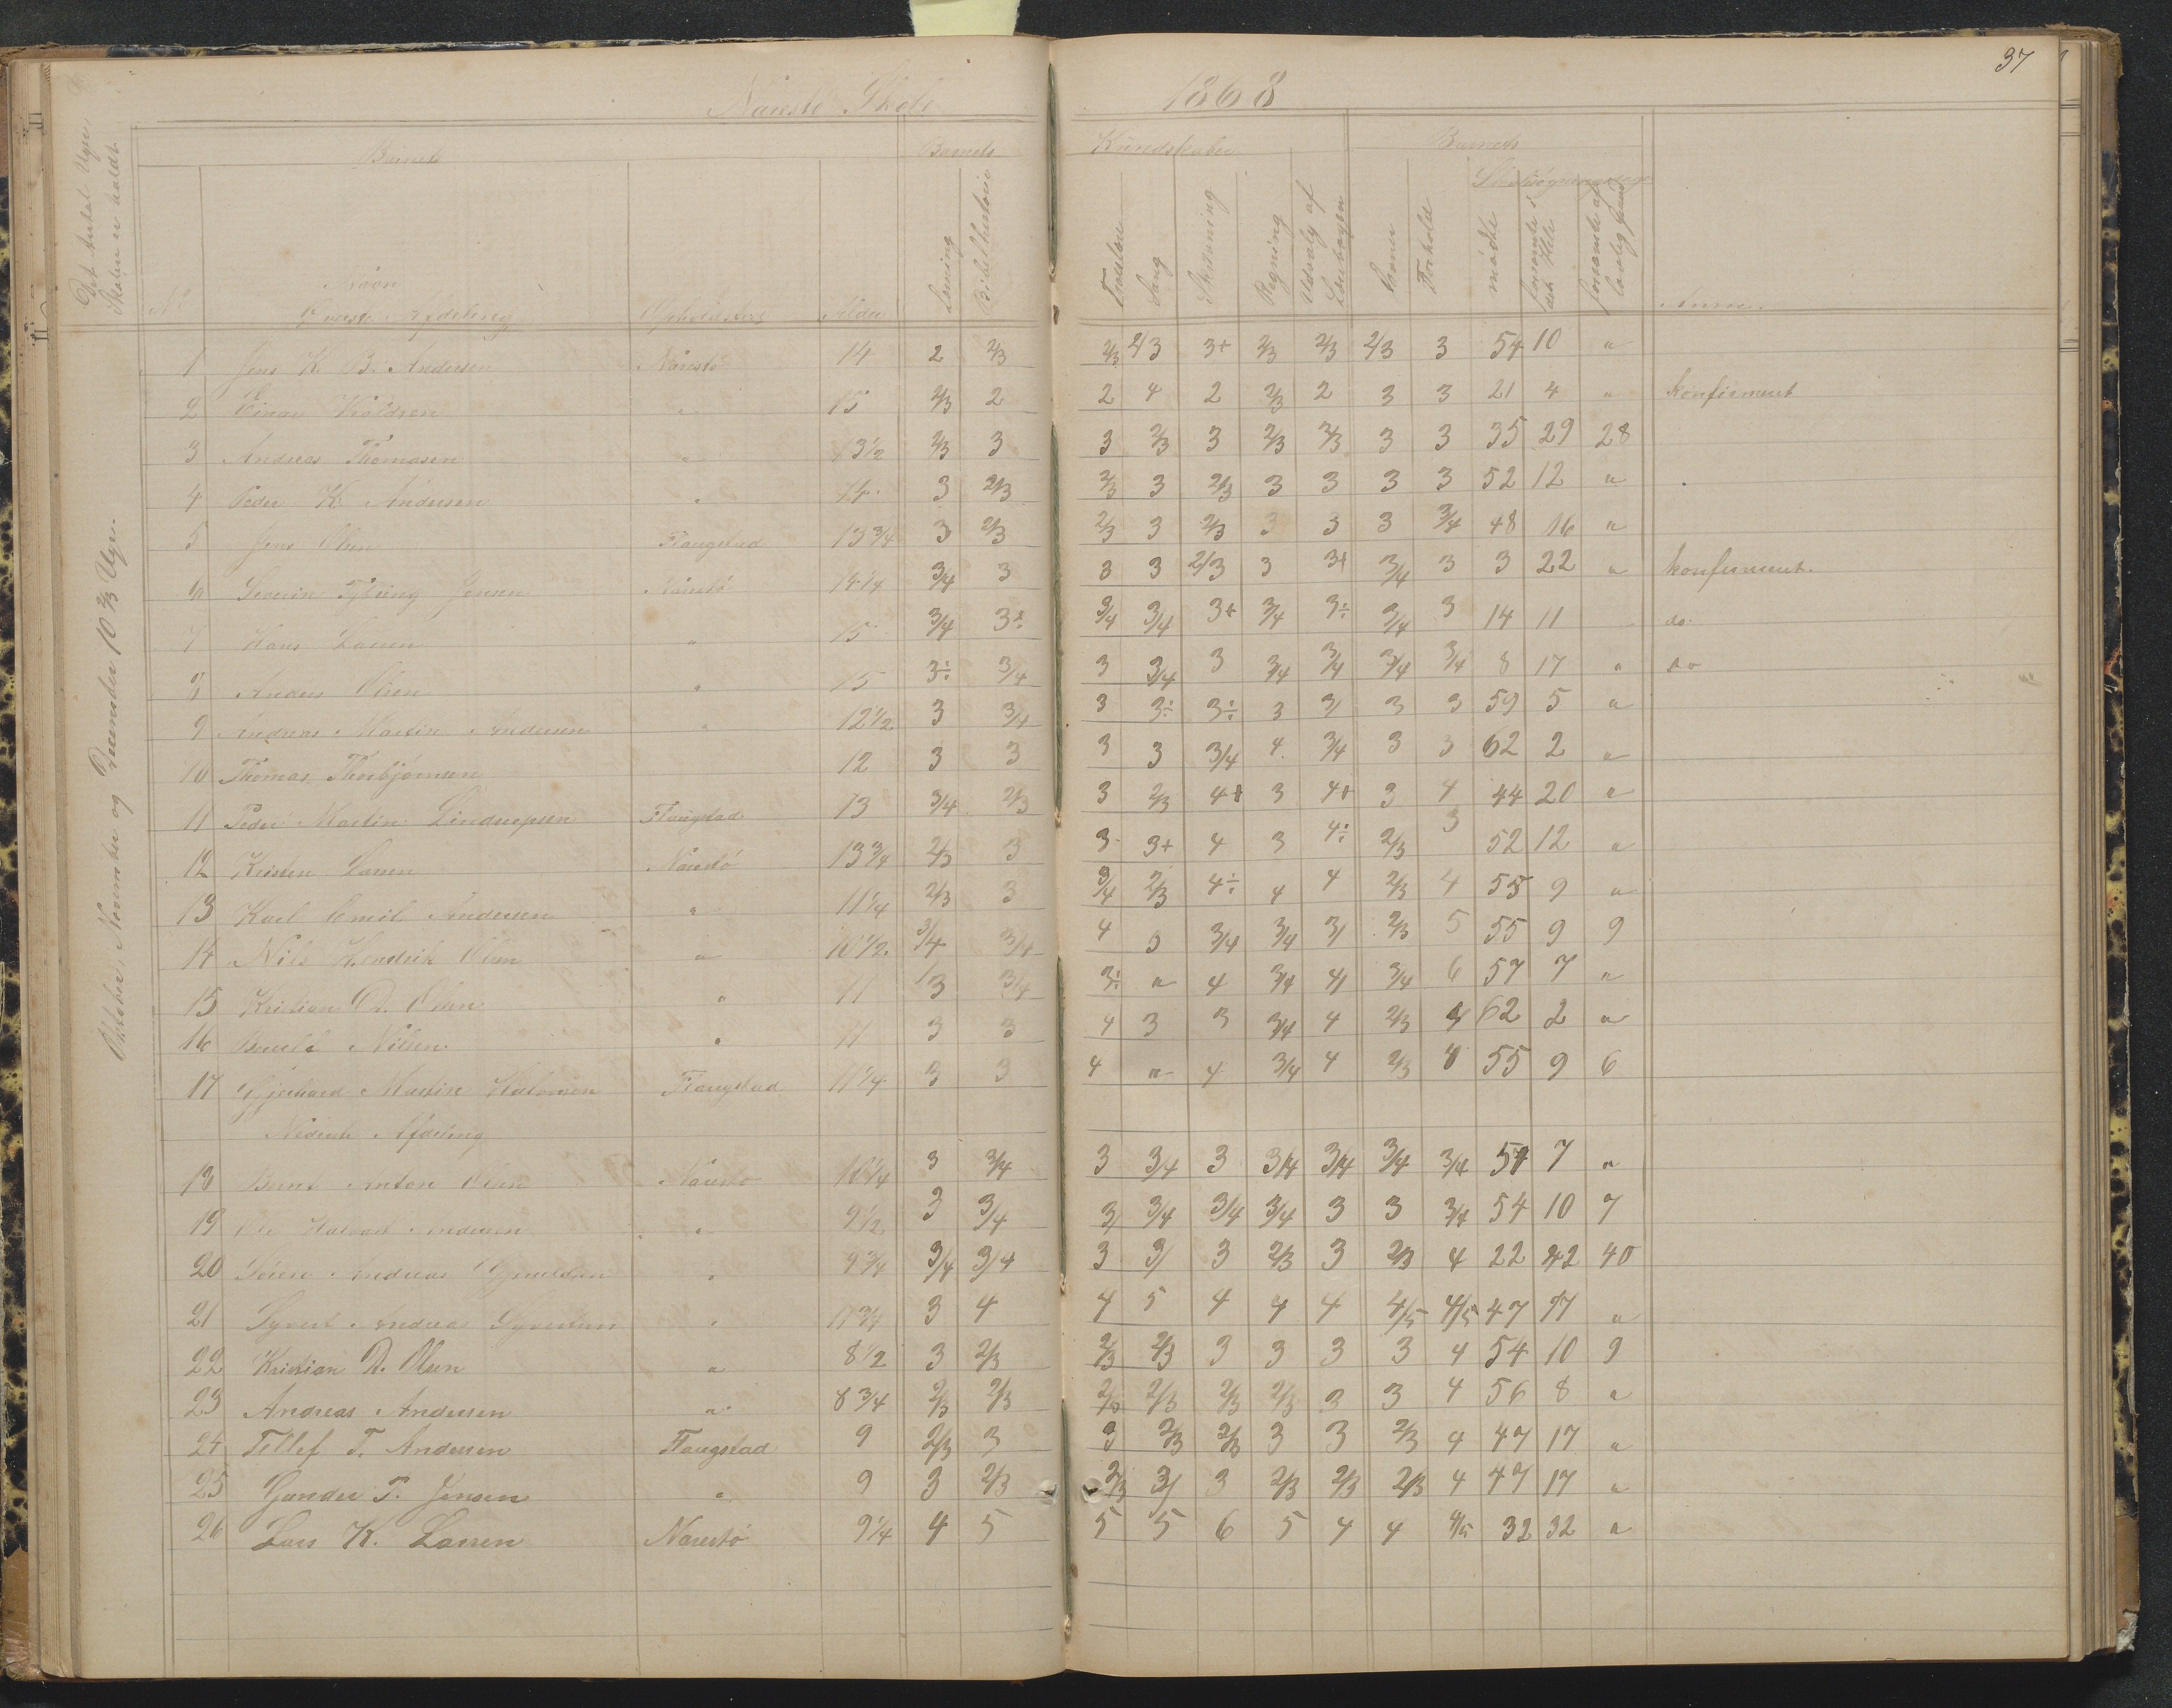 37
Næreste Skole 1868
Det Antal Uger, Skolen er holdt
Oktober, November og December 10 2/3 Uge.
Barnets Barnets Kundskaber Barnets
Skolesøgningsdage
No Navn Opholdssted Alder Læsning Bibelhistorie Troeslære Sang Skrivning Regning Udvalg af Læsebogen Evner Forhold mødte forsømte i det Hele forsømte af lovlig Grund Anm.
Øverste Afdeling
1 Jens K. B. Andersen Narestö 14 2 2/3 2/3 2/3 3+ 2/3 2/3 2/3 3 54 10 "
2 Einar Kjöldsen " 15 2/3 2 2 4 2 2/3 2 3 3 21 4 " konfirmeret
3 Andreas Thomasen " 13 1/2 2/3 3 3 2/3 3 2/3 2/3 3 3 35 29 28
4 Peder K. Andersen " 14 3 2/3 2/3 3 2/3 3 3 3 3 52 12 "
5 Jens Olsen Flangstad 13 3/4 3 2/3 2/3 3 2/3 3 3 3 3/4 48 16 "
6 Severin Jensen Narestö 14 1/4 3/4 3 3 3 2/3 3 3+ 3/4 3 3 22 " konfirmeret.
7 Hans Larsen " 15 3/4 3÷ 3/4 3/4 3+ 3/4 3÷ 3/4 3 14 11 do.
8 Anders Olsen " 15 3÷ 3/4 3 3/4 3 3/4 3/4 3/4 3/4 8 17 " do
9 Andreas Martin Andersen " 12 1/2 3 3/4 3 3÷ 3÷ 3 3/ 3 3 59 5 "
10 Thomas Thorbjørnsen 12 3 3 3 3 3/4 4 3/4 3 3 62 2 "
11 Peder Martin Lindrupsen Flangstad 13 3/4 2/3 3 2/3 4+ 3 4+ 3 4 44 20 "
12 Kristen Larsen Narestö 13 3/4 2/3 3 3 3+ 4 3 4÷ 2/3 3 52 12 "
13 Karl Emil Andersen " 11 1/4 2/3 3 3/4 2/3 4÷ 4 4 2/3 4 55 9 "
14 Nils Hendrik Olsen " 10 1/2 3/4 3/4 4 3 3/4 3/4 3/ 2/3 5 55 9 9
15 Kristian O. Olsen " 11 3 3/4 3÷ " 4 3/4 4/ 3/4 6 57 7 "
16 Nilsen " 11 3 3 4 3 3 3/4 4 2/3 4 62 2 "
17 Gjerhard Martin Halvorsen Flangstad 11 1/4 3 3 4 " 4 3/4 4 2/3 4 55 9 6
Nederste Afdeling
18 Bernt Anton Olsen Narestö 10 1/4 3 3/4 3 3/4 3 3/4 3/4 3/4 3/4 57 7 "
19 Ole Halvard Andersen " 9 1/2 3 3/4 3/ 3/4 3/4 3/4 3 3 3/4 54 10 7
20 Sören Andreas " 9 3/4 3/4 3/4 3 3/ 3 2/3 3 2/3 4 22 42 40
21 Syvert Andreas Syvertsen " 11 3/4 3 4 4 5 4 4 4 4/5 4/5 47 17 "
22 Kristian O. Olsen " 8 1/2 3 2/3 2/3 2/3 3 3 3 3 4 54 10 9
23 Andreas Andersen " 8 3/4 2/3 2/3 2/3 2/3 2/3 2/3 3 3 4 56 8 "
24 Tellef T. Andersen Flangstad 9 2/3 3 3 2/3 2/3 3 3 2/3 4 47 17 "
25 Gunder T. Jensen " 9 3 2/3 2/3 3/ 3 2/3 2/3 2/3 4 47 17 "
26 Lars K. Larsen Narestö 9 1/4 4 5 5 5 6 5 4 4 4/5 32 32 "